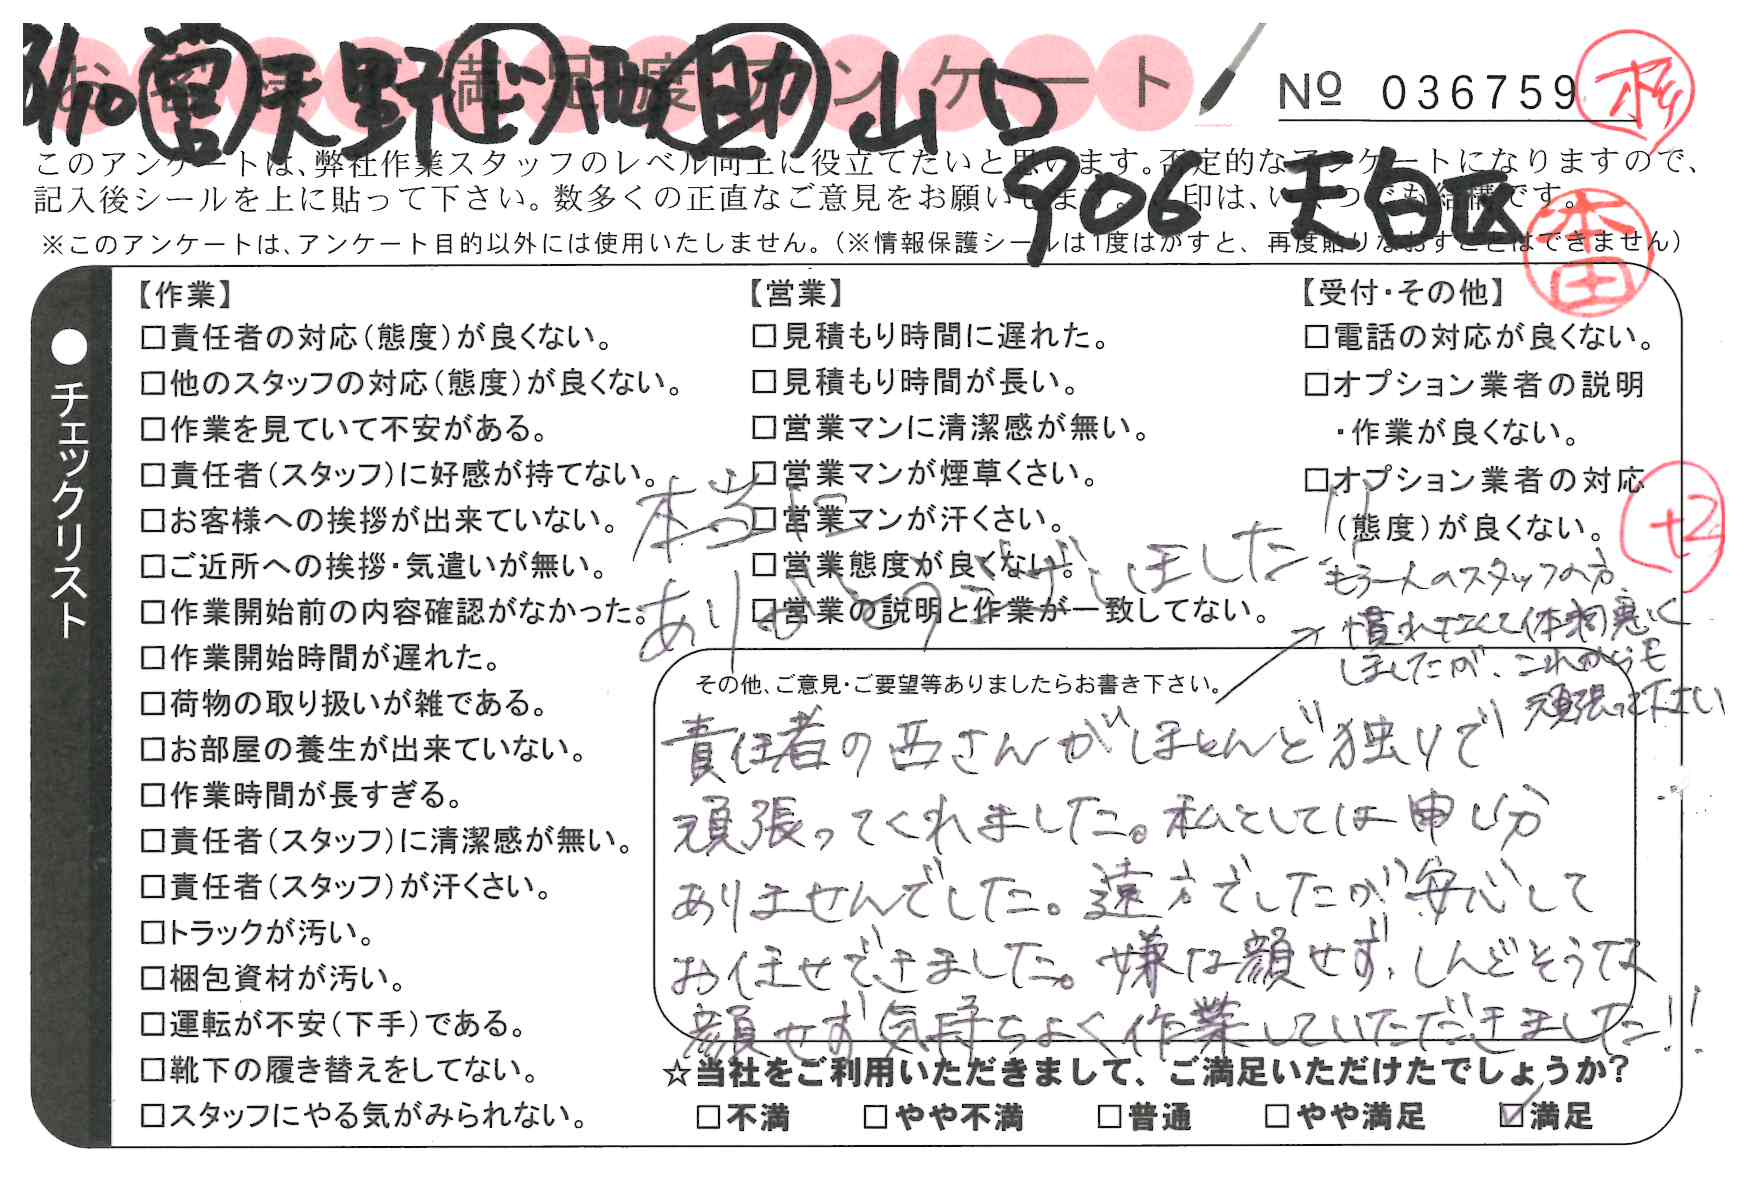 お客様満足度アンケート
3/10 営 天野 上 西 助 山口
№ 036759
906 天白区
このアンケートは、弊社作業スタッフのレベル向上に役立てたいと思います。否定的なアンケートになりますので、
記入後シールを上に貼って下さい。数多くの正直なご意見をお願いします。 印は、いくつでも結構です。
※このアンケートは、アンケート目的以外には使用いたしません。(※情報保護シールは1度はがすと、再度貼りなおすことはできません)
本田
●チェックリスト
【作業】
□責任者の対応(態度)が良くない。
□他のスタッフの対応(態度)が良くない。
□作業を見ていて不安がある。
□責任者(スタッフ)に好感が持てない。
□お客様への挨拶が出来ていない。
□ご近所への挨拶・気遣いが無い。
□作業開始前の内容確認がなかった。
□作業開始時間が遅れた。
□荷物の取り扱いが雑である。
□お部屋の養生が出来ていない。
□作業時間が長すぎる。
□責任者(スタッフ)に清潔感が無い。
□責任者(スタッフ)が汗くさい。
□トラックが汚い。
□梱包資材が汚い。
□運転が不安(下手)である。
□靴下の履き替えをしてない。
□スタッフにやる気がみられない。
【営業】
□見積もり時間に遅れた。
□見積もり時間が長い。
□営業マンに清潔感が無い。
□営業マンが煙草くさい。
□営業マンが汗くさい。
□営業態度が良くない。
□営業の説明と作業が一致してない。
【受付・その他】
□電話の対応が良くない。
□オプション業者の説明
・作業が良くない。
□オプション業者の対応
(態度)が良くない。
本当に
ありがとうございました!!
もう一人のスタッフの方、
慣れてなくて体調悪く
しましたが、これからも
頑張って下さい
その他、ご意見・ご要望等ありましたらお書き下さい。
責任者の西さんがほとんど独りで
頑張ってくれました。私としては申し分
ありませんでした。遠方でしたが安心して
お任せできました。嫌な顔せず、しんどそうな
顔せず気持ちよく作業していただきました!!
☆当社をご利用いただきまして、ご満足いただけたでしょうか?
□不満 □やや不満 □普通 □やや満足 ☑満足